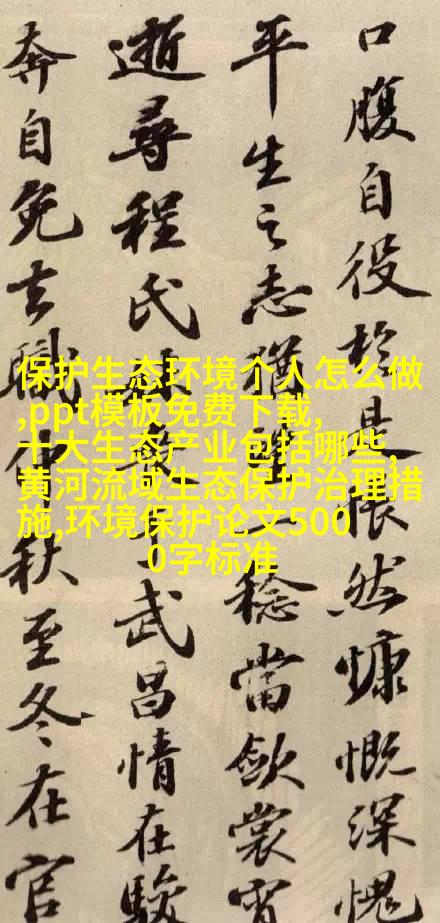 口腹自役於是悵然慷慨深愧
平生之志猶望一稔當斂裳宵
逝尋程氏妹喪于武昌情在駿
奔自免去職仲秋至冬在官
保护生态环境个人怎么做
,ppt模板免费下载,
十大生态产业包括哪些,
黄河流域生态保护治理措
施,环境保护论文500
0字标准